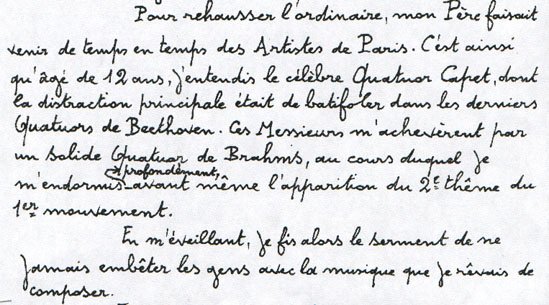 Pour rehausser l'ordinaire, mon Père faisait
venir de temps en temps des Artistes de Paris. C'est ainsi
qu'âgé de 12 ans, j'entendis le célèbre Quatuor Capet, dont
la distraction principale était de batifoler dans les derniers
Quatuors de Beethoven. Ces Messieurs m'achevèrent par
un solide Quatuor de Brahms, au cours duquel je
profondément,
m'endormis avant même l'apparition du 2e thème du
1er mouvement.
En m'éveillant, je fis alors le serment de ne
jamais embêter les gens avec la musique que je rêvais de
composer.